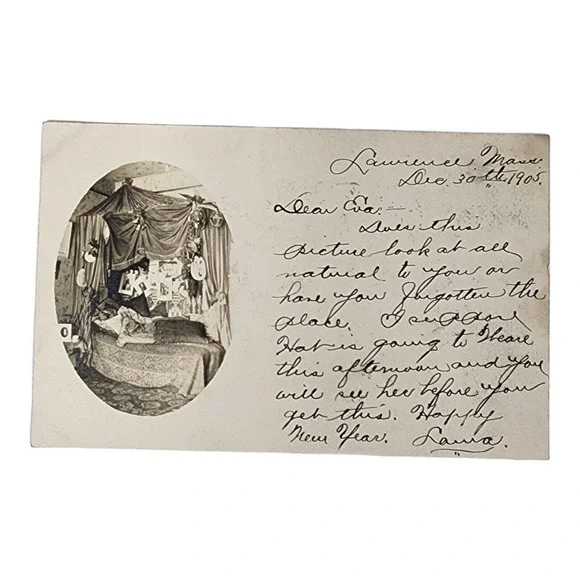 Lawrence Mass
Dec. 30th 1905.
Dear Eva
Does this
picture look at all
natural to you or
have you forgotten the
place. I suppose
Hat is going to
this afternoon and you
will see her before you
get this. Happy
New Year. Laura.